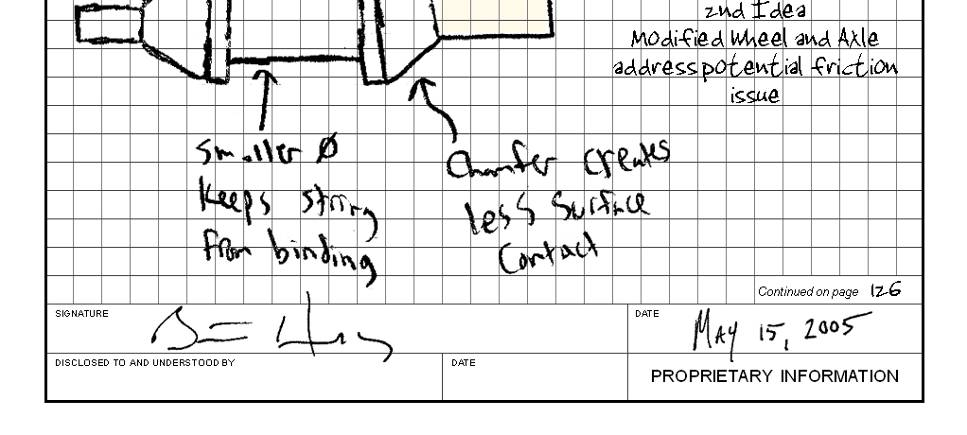 2nd Idea
Modified Wheel and Axle
address potential friction
issue
Smaller Ø
Keeps string
from binding
Chamfer creates
less Surface
Contact
Continued on page 126
SIGNATURE
DATE
May 15, 2005
DISCLOSED TO AND UNDERSTOOD BY
DATE
PROPRIETARY INFORMATION